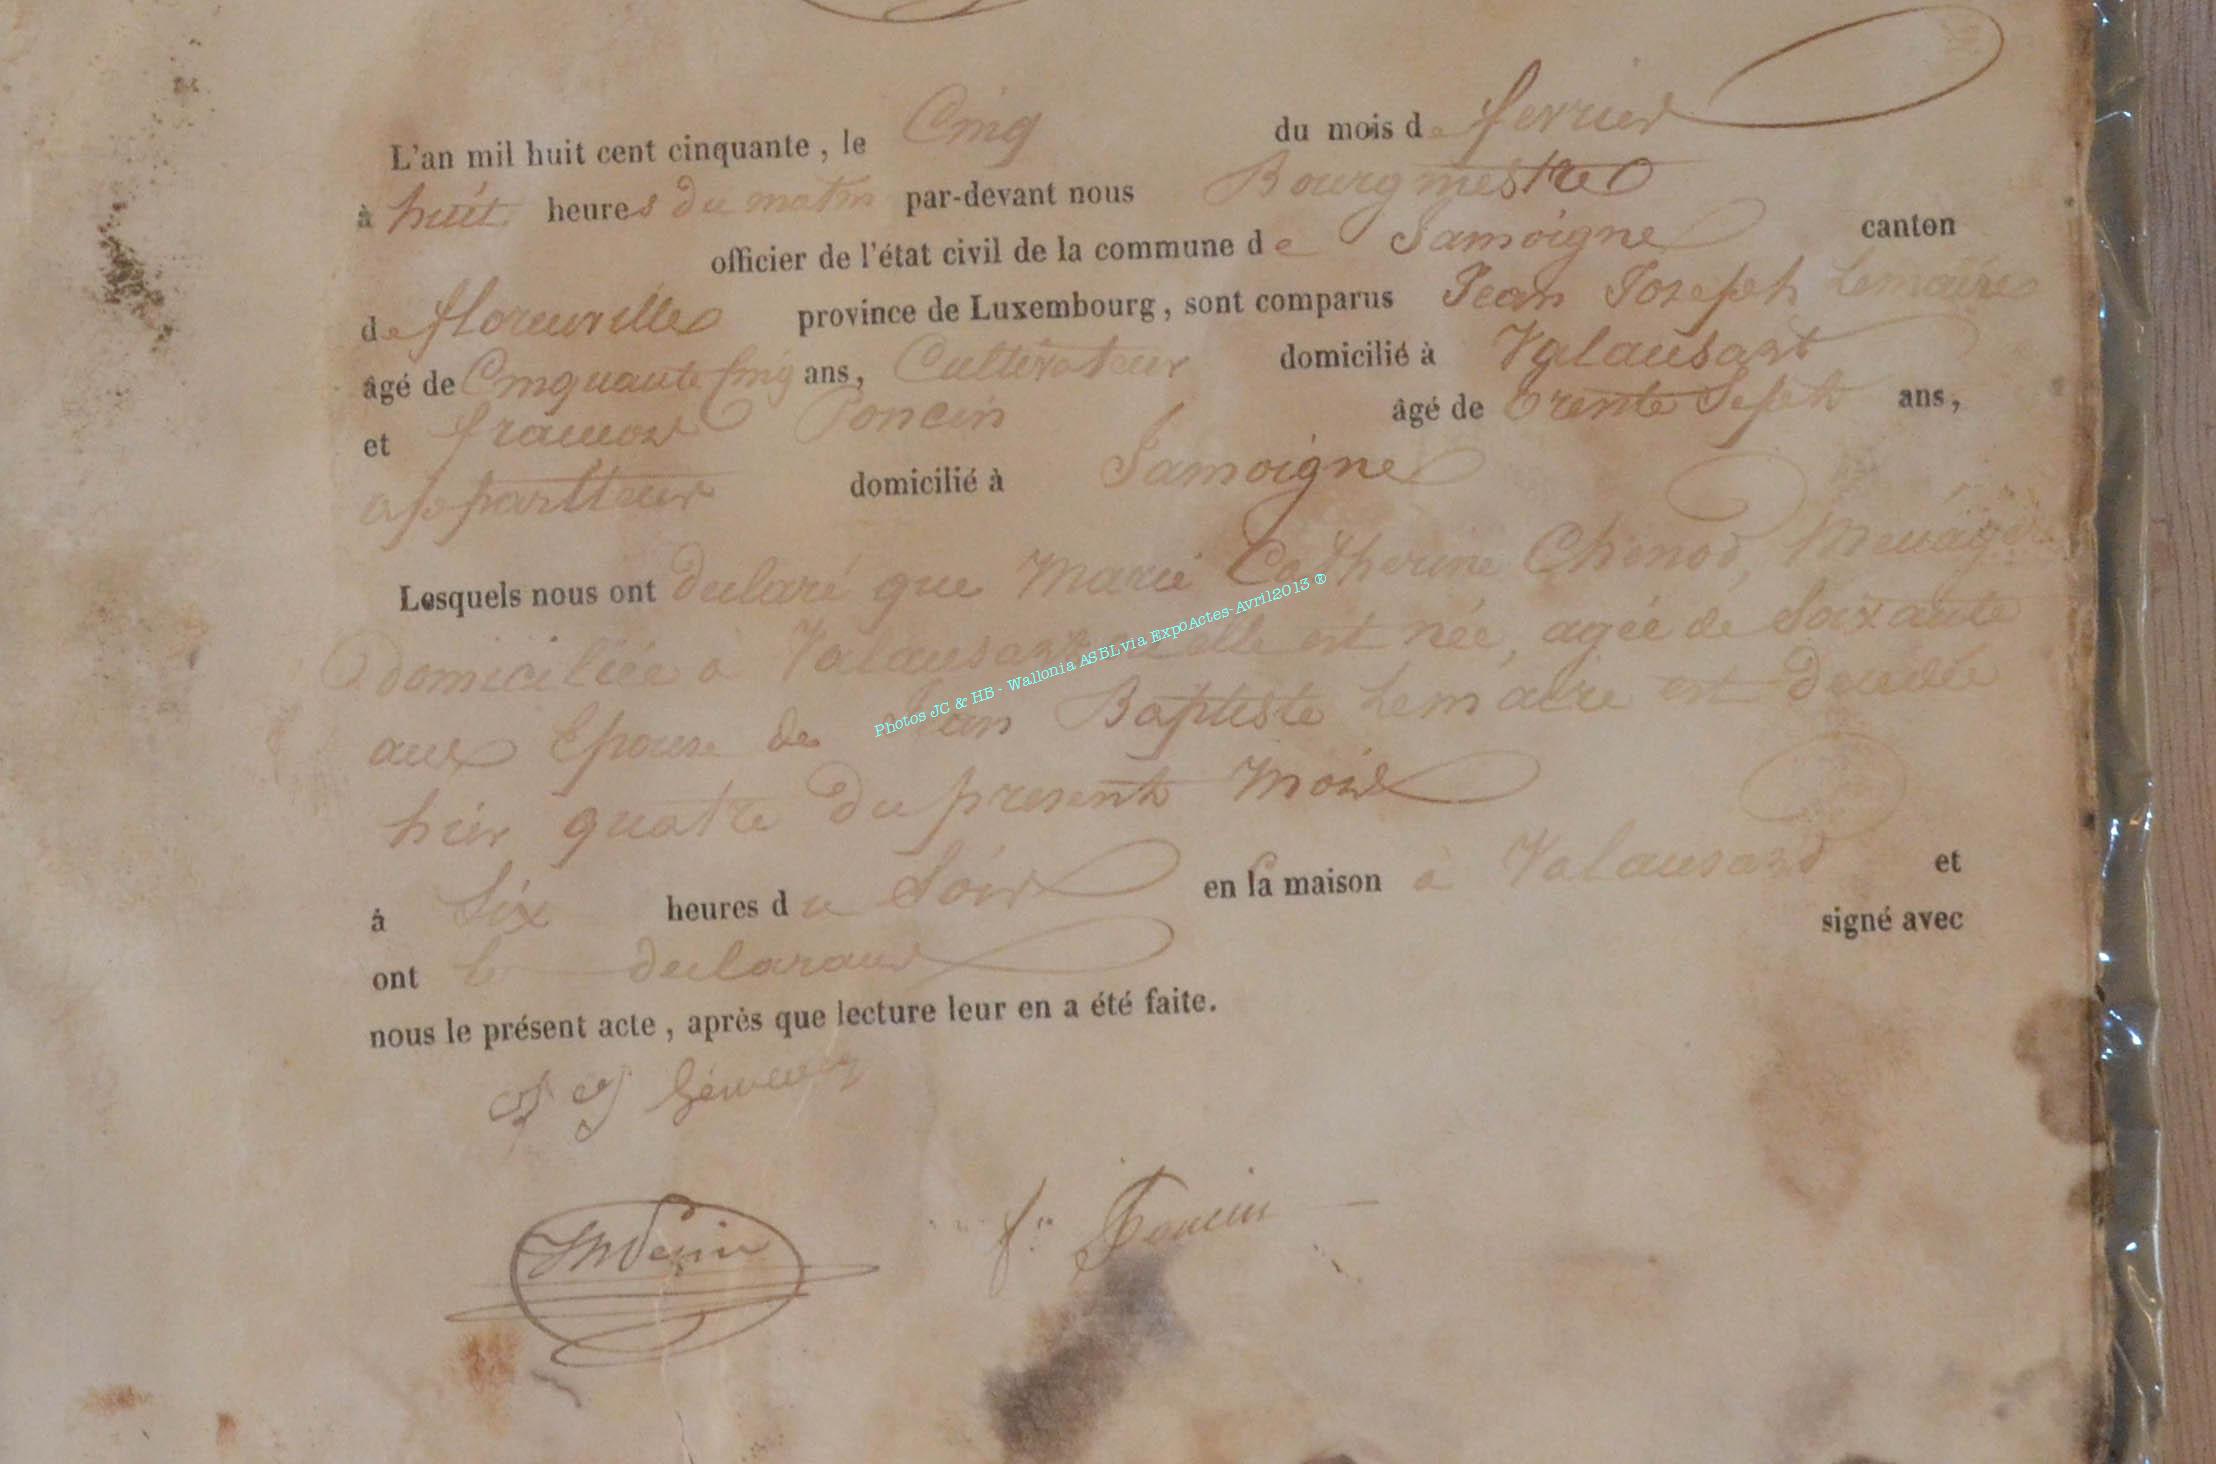 L'an mil huit cent cinquante, le Cinq du mois de fevrier
à huit heures du matin par-devant nous Bourgmestre
officier de l'état civil de la commune de Jamoigne canton
de florenville province de Luxembourg, sont comparus Jean Joseph Lemaire
âgé de Cinquante Cinq ans, Cultivateur domicilié à Valansart
et francois Poncin âgé de trente Sept ans,
appartteur domicilié à Jamoigne
Lesquels nous ont declaré que Marie Catherine Chenot Menagere
Domiciliée a Valansart elle est née, agée de Soixante
ans Epouse de Jean Baptiste Lemaire est decedée
hier quatre du present Mois
à Six heures du Soir en la maison à Valansard et
ont le declarant signé avec
nous le présent acte, après que lecture leur en a été faite.
f. Poncin
Photos JC & HB - Wallonia ASBL via ExpoActes-Avril2013 ®